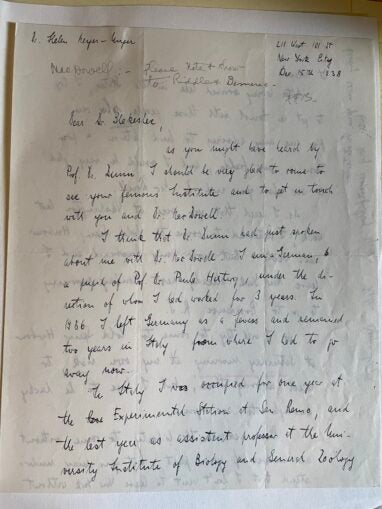 Dr. Helen Meyer-
West 101 St
New York City
Dec. 15th 1938
MacDowell :- Please Note & Show
to Riddle & Demerec
Dear Dr. Blakeslee,
as you might have heard by
Prof. Dr. Dunn I should be very glad to come to
see your famous Institute and to get in touch
with you and Dr. MacDowell.
I think that Dr. Dunn had just spoken
about me with Dr. MacDowell. I am a German,
a pupil of Prof. Dr. Paula Hertwig, under the di-
rection of whom I had worked for 3 years. In
1936 I left Germany as a and remained
two years in Italy from where I had to go
away now.
In Italy I was occupied for one year at
the Experimental Station at San Remo, and
the last year as assistent professor at the Uni-
versity Institute of Biology and General Zoology